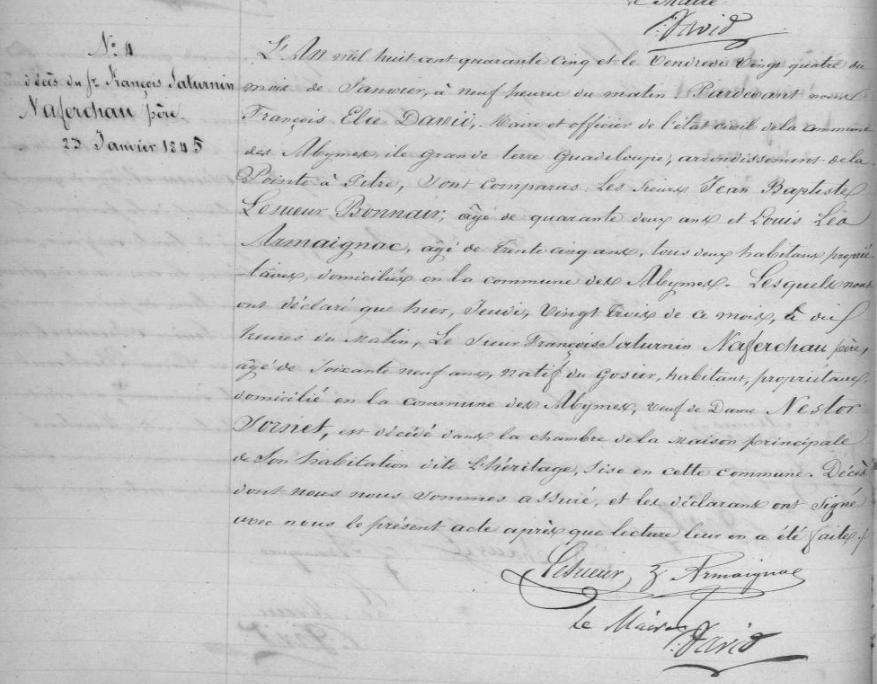 le Maire
F. David
N.º 4
décès du Sr. François Saturnin
Naferchau père
23 Janvier 1845
L'An mil huit cent quarante cinq et le Vendredi Vingt quatre du
mois de Janvier, à neuf heures du matin. Pardevant nous
François Elie David, Maire et officier de l'état civil de la commune
des Abymes, ile Grande terre Guadeloupe, arrondissement de la
Pointe à Pitre, sont comparus les Sieurs Jean Baptiste
Lesueur Bonnair, âgé de quarante deux ans et Louis Léo
Armaignac, âgé de trente cinq ans, tous deux habitans proprié-
taires, domiciliés en la commune des Abymes. Lesquels nous
ont déclaré que hier, Jeudi, Vingt Trois de ce mois, à
heures du Matin, Le Sieur François Saturnin Naferchau père,
âgé de Soixante neuf ans, natif du Gosier, habitant, propriétaire,
domicilié en la commune des Abymes, veuf de Dame Nestor
Jornet, est décédé dans la chambre de la maison principale
de son habitation dite L'héritage, sise en cette commune. Décès
dont nous nous sommes assuré, et les déclarans ont signé
avec nous le présent acte après que lecture leur en a été faite.
Lesueur, Armaignac
le Maire
F. David